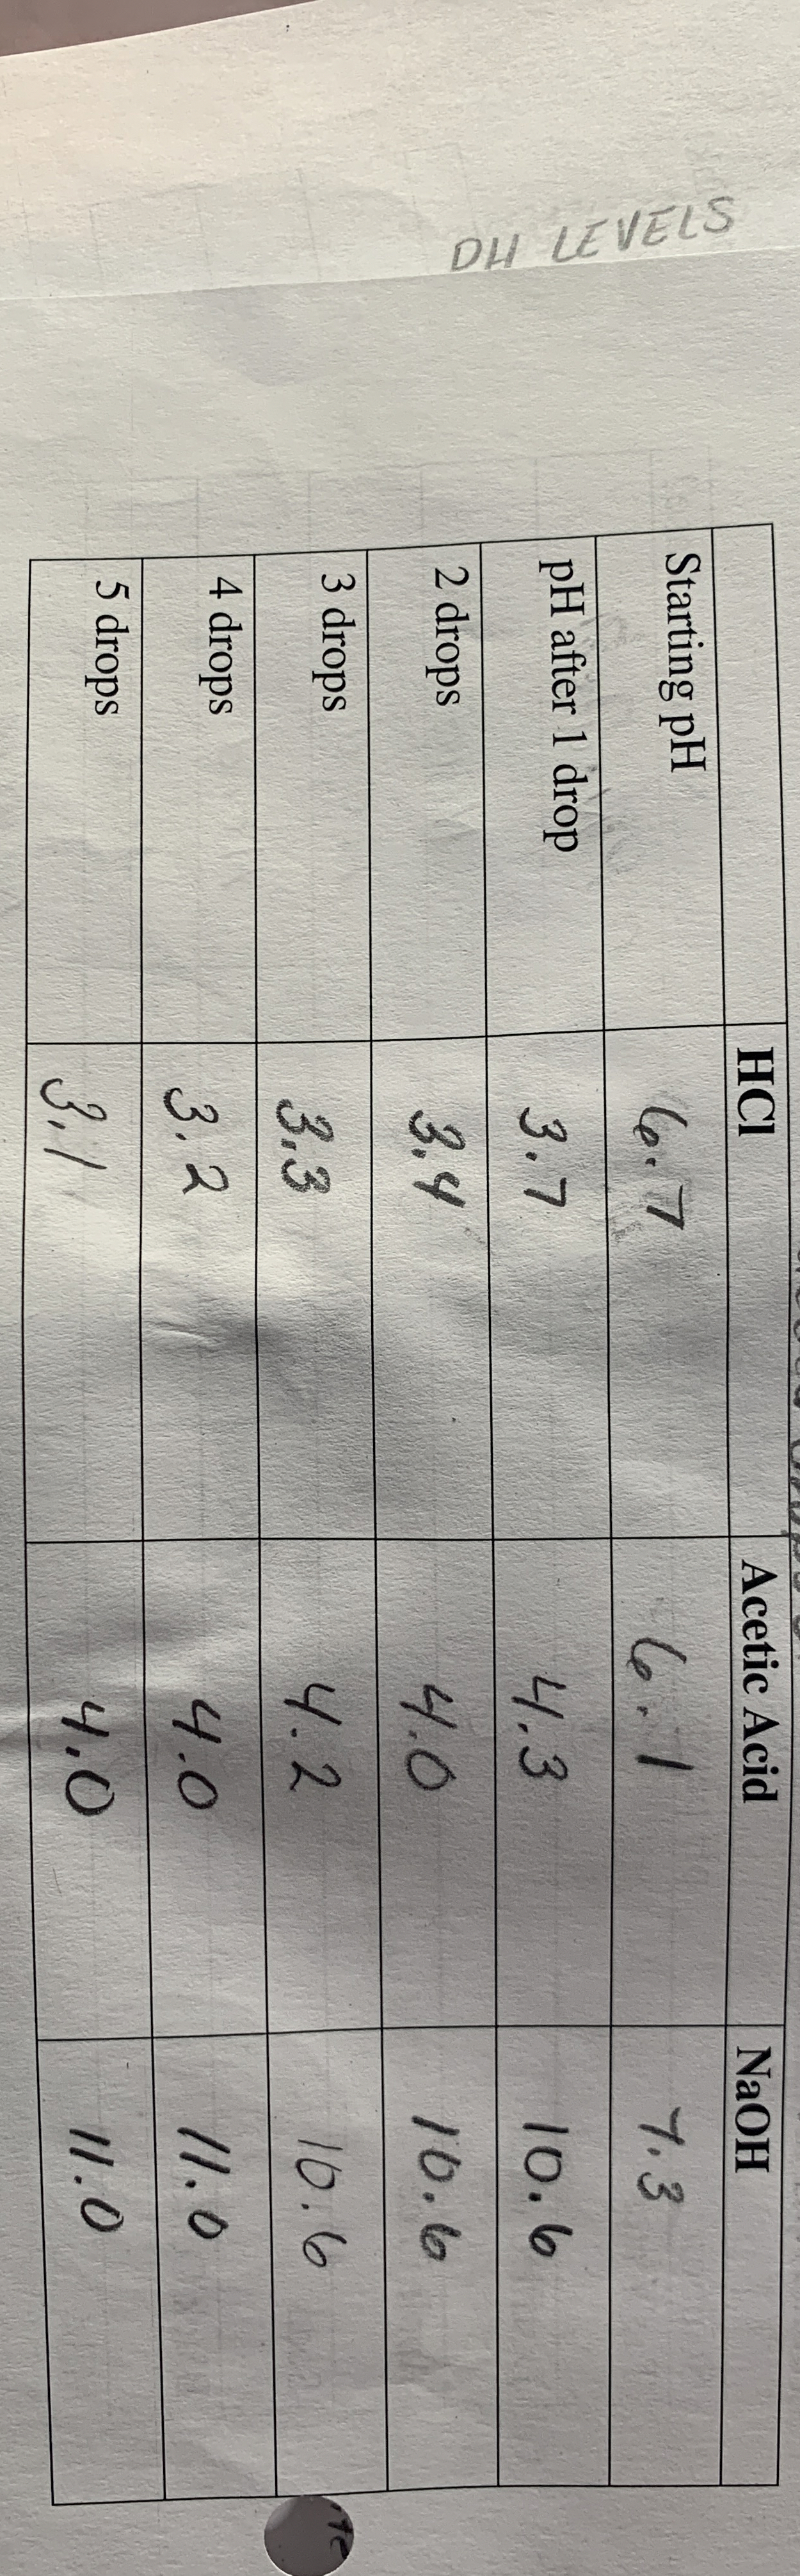 PH LEVELS
HCl Acetic Acid NaOH
Starting pH 6.7 6.1 7.3
pH after 1 drop 3.7 4.3 10.6
2 drops 3.4 4.0 10.6
3 drops 3.3 4.2 10.6
4 drops 3.2 4.0 11.0
5 drops 3.1 4.0 11.0